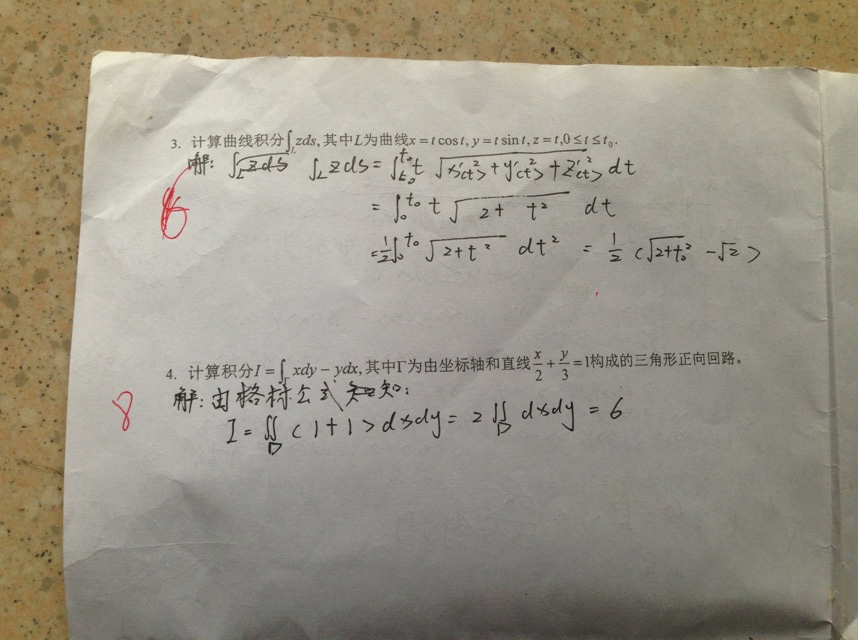 3. 计算曲线积分∫_L zds, 其中L为曲线x = t cos t, y = t sin t, z = t, 0 ≤ t ≤ t₀.
解: ∫_L zds ∫_L zds = ∫₀^t₀ t √(x'²(t) + y'²(t) + z'²(t)) dt
= ∫₀^t₀ t √(2 + t²) dt
= 1/2 ∫₀^t₀ √(2+t²) dt² = 1/2 (√(2+t₀²) - √2)
6
4. 计算积分I = ∫_Γ xdy − ydx, 其中Γ为由坐标轴和直线x/2 + y/3 = 1构成的三角形正向回路。
解: 由格林公式知:
8
I = ∬_D (1+1) dxdy = 2 ∬_D dxdy = 6